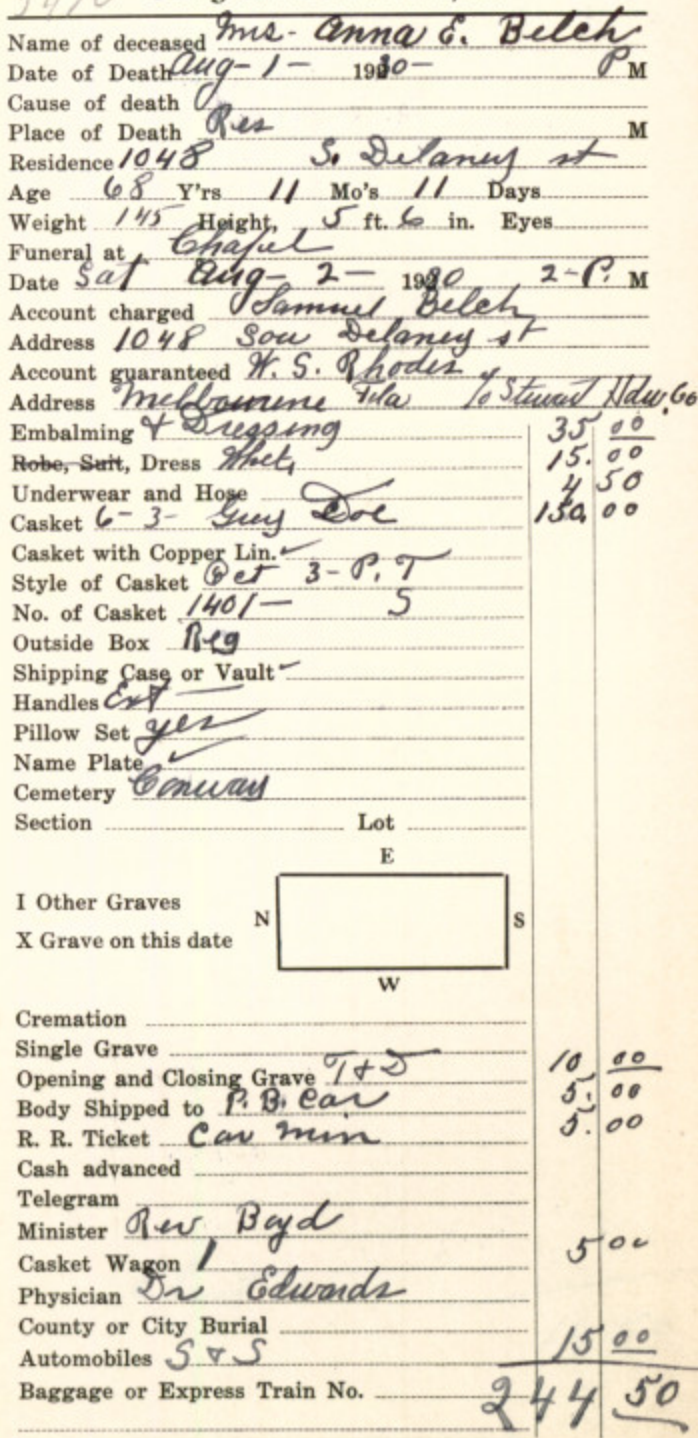 Name of deceased Mrs- Anna E. Belch
Date of Death Aug- 1- 1930- P M
Cause of death
Place of Death Res M
Residence 1048 S. Delaney st
Age 68 Y'rs 11 Mo's 11 Days
Weight 145 Height, 5 ft. 6 in. Eyes
Funeral at Chapel
Date Sat Aug- 2- 1930 2-P. M
Account charged Samuel Belch
Address 1048 Sou Delaney st
Account guaranteed W. S. Rhodes
Address Melbourne Fla % Stewart Hdw. Co
Embalming & Dressing 35 00
Robe, Suit, Dress White 15. 00
Underwear and Hose 4 50
Casket 6-3- Grey Doe 150. 00
Casket with Copper Lin. ✓
Style of Casket Oct 3-P. T
No. of Casket 1401- S
Outside Box Reg
Shipping Case or Vault
Handles Ext
Pillow Set yes
Name Plate ✓
Cemetery Conway
Section Lot
E
I Other Graves
N S
X Grave on this date
W
Cremation
Single Grave
Opening and Closing Grave T & D 10 00
Body Shipped to P. B. Car 5. 00
R. R. Ticket Car Min 5. 00
Cash advanced
Telegram
Minister Rev Boyd
Casket Wagon 1 5 00
Physician Dr Edwards
County or City Burial
Automobiles S & S 15 00
Baggage or Express Train No. 244 50